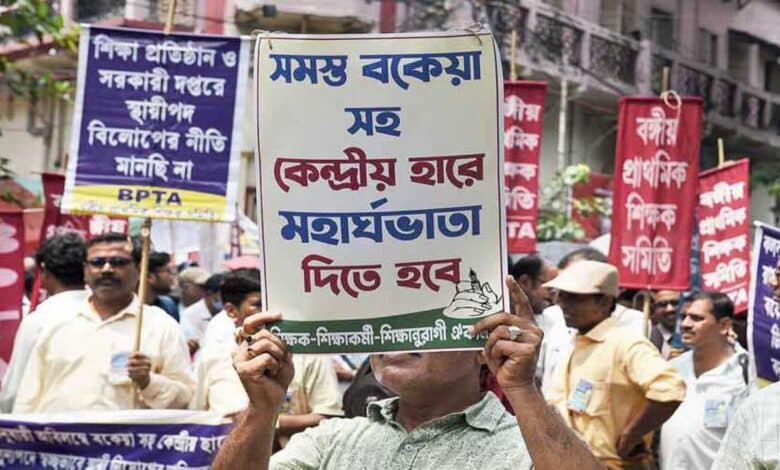 শিক্ষা প্রতিষ্ঠান ও
সরকারী দপ্তরে
স্থায়ীপদ
বিলোপের নীতি
মানছি না
BPTA
সমস্ত বকেয়া
সহ
কেন্দ্রীয় হারে
মহার্ঘভাতা
দিতে হবে
শিক্ষক-শিক্ষাকর্মী-শিক্ষানুরাগী ঐক্য
বঙ্গীয়
প্রাথমিক
শিক্ষক
BPTA
বঙ্গীয়
প্রাথমিক
শিক্ষক
সমিতি
বঙ্গীয়
প্রাথমিক
শিক্ষক
সমিতি
বকেয়া সহ কেন্দ্রীয়